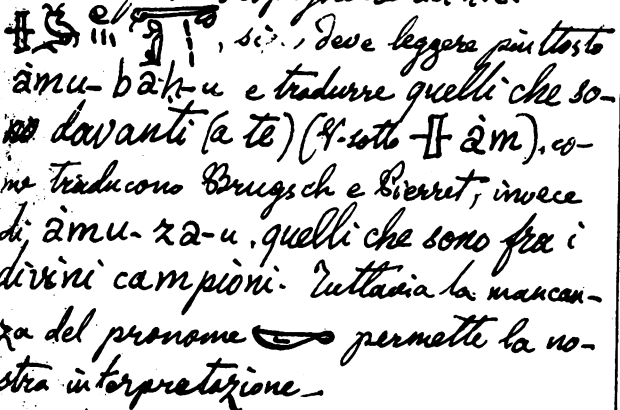 , si deve leggere piuttosto
àmu-bàḥ-u e tradurre quelli che so-
no davanti (a te) (V. sotto 𓏶 àm). co-
me traducono Brugsch e Pierret, invece
di àmu-za-u, quelli che sono fra i
divini campioni. Tuttavia la mancan-
za del pronome 𓎡 permette la no-
stra interpretazione_